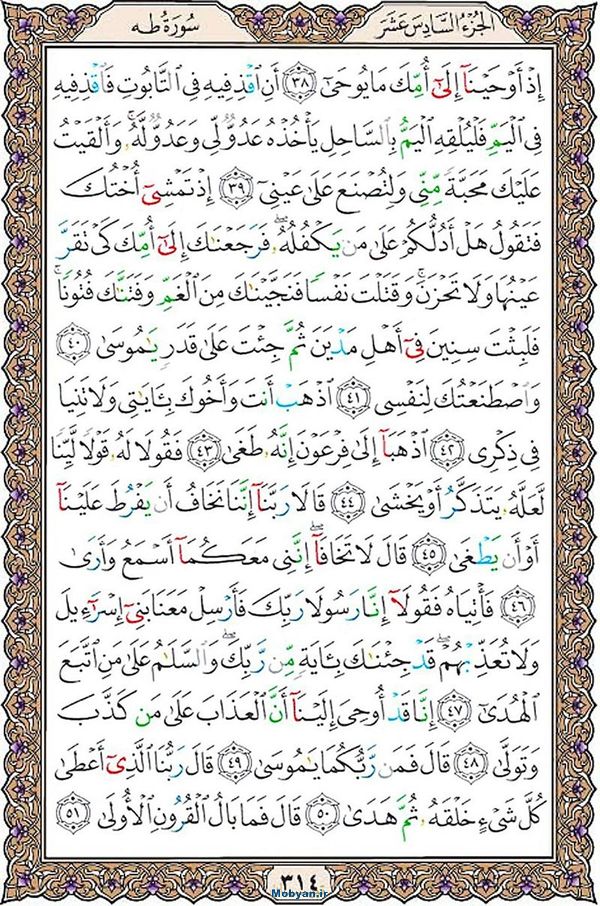 الجزء السادس عشر
سورة طه
إِذْ أَوْحَيْنَآ إِلَىٰٓ أُمِّكَ مَا يُوحَىٰٓ ﴿٣٨﴾ أَنِ ٱقْذِفِيهِ فِى ٱلتَّابُوتِ فَٱقْذِفِيهِ
فِى ٱلْيَمِّ فَلْيُلْقِهِ ٱلْيَمُّ بِٱلسَّاحِلِ يَأْخُذْهُ عَدُوٌّ لِّى وَعَدُوٌّ لَّهُۥ ۚ وَأَلْقَيْتُ
عَلَيْكَ مَحَبَّةً مِّنِّى وَلِتُصْنَعَ عَلَىٰ عَيْنِىٓ ﴿٣٩﴾ إِذْ تَمْشِىٓ أُخْتُكَ
فَتَقُولُ هَلْ أَدُلُّكُمْ عَلَىٰ مَن يَكْفُلُهُۥ ۖ فَرَجَعْنَٰكَ إِلَىٰٓ أُمِّكَ كَىْ تَقَرَّ
عَيْنُهَا وَلَا تَحْزَنَ ۚ وَقَتَلْتَ نَفْسًا فَنَجَّيْنَٰكَ مِنَ ٱلْغَمِّ وَفَتَنَّٰكَ فُتُونًا ۚ
فَلَبِثْتَ سِنِينَ فِىٓ أَهْلِ مَدْيَنَ ثُمَّ جِئْتَ عَلَىٰ قَدَرٍ يَٰمُوسَىٰ ﴿٤٠﴾
وَٱصْطَنَعْتُكَ لِنَفْسِى ﴿٤١﴾ ٱذْهَبْ أَنتَ وَأَخُوكَ بِـَٔايَٰتِى وَلَا تَنِيَا
فِى ذِكْرِى ﴿٤٢﴾ ٱذْهَبَآ إِلَىٰ فِرْعَوْنَ إِنَّهُۥ طَغَىٰ ﴿٤٣﴾ فَقُولَا لَهُۥ قَوْلًا لَّيِّنًا
لَّعَلَّهُۥ يَتَذَكَّرُ أَوْ يَخْشَىٰ ﴿٤٤﴾ قَالَا رَبَّنَآ إِنَّنَا نَخَافُ أَن يَفْرُطَ عَلَيْنَآ
أَوْ أَن يَطْغَىٰ ﴿٤٥﴾ قَالَ لَا تَخَافَآ ۖ إِنَّنِى مَعَكُمَآ أَسْمَعُ وَأَرَىٰ
﴿٤٦﴾ فَأْتِيَاهُ فَقُولَآ إِنَّا رَسُولَا رَبِّكَ فَأَرْسِلْ مَعَنَا بَنِىٓ إِسْرَٰٓءِيلَ
وَلَا تُعَذِّبْهُمْ ۖ قَدْ جِئْنَٰكَ بِـَٔايَةٍ مِّن رَّبِّكَ ۖ وَٱلسَّلَٰمُ عَلَىٰ مَنِ ٱتَّبَعَ
ٱلْهُدَىٰٓ ﴿٤٧﴾ إِنَّا قَدْ أُوحِىَ إِلَيْنَآ أَنَّ ٱلْعَذَابَ عَلَىٰ مَن كَذَّبَ
وَتَوَلَّىٰ ﴿٤٨﴾ قَالَ فَمَن رَّبُّكُمَا يَٰمُوسَىٰ ﴿٤٩﴾ قَالَ رَبُّنَا ٱلَّذِىٓ أَعْطَىٰ
كُلَّ شَىْءٍ خَلْقَهُۥ ثُمَّ هَدَىٰ ﴿٥٠﴾ قَالَ فَمَا بَالُ ٱلْقُرُونِ ٱلْأُولَىٰ ﴿٥١﴾
٣١٤
Mobyan.ir